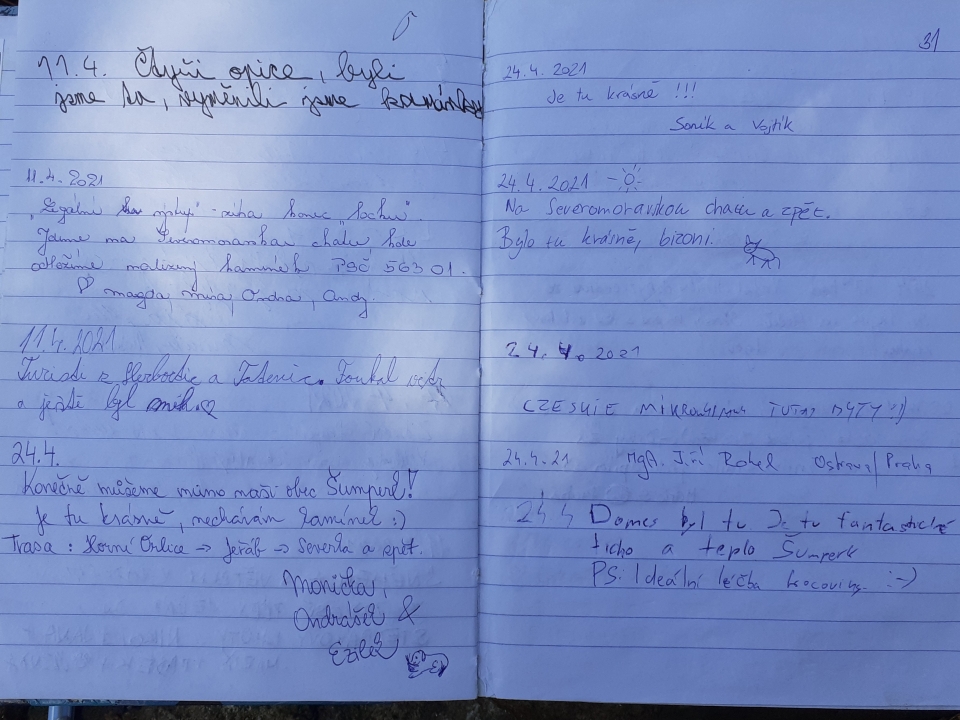 11.4. Čtyři opice, byli
jsme tu, vyměnili jsme kamínky
11.4.2021
"Legální výstup" - ruba konec "lochu".
Jdeme na Severomoravskou chatu kde
odložíme nalezený kamínek PSČ 563 01.
♡ magda, míra, Ondra, Andy.
11.4.2021
Turisti z Herbortic a Tatenic. Foukal vítr
a ještě byl sníh. ♡
24.4.
Konečně můžeme mimo naši obec Šumperk!
Je tu krásně, nechávám kamínek :)
Trasa: Horní Orlice → Jeřáb → Severka a zpět.
Monička,
Ondrášek &
31
24.4.2021
Je tu krásně !!!
Soník a Vojtík
24.4.2021
Na Severomoravskou chatu a zpět.
Bylo tu krásně, bizoni.
24.4.2021
CZESKIE TUTAJ BYŁY :))
24.4.21 MgA. Jiří Ostrava/Praha
24.4 Domes byl tu Je tu fantastické
ticho a teplo Šumperk
PS: Ideální léčba kocoviny. :-)